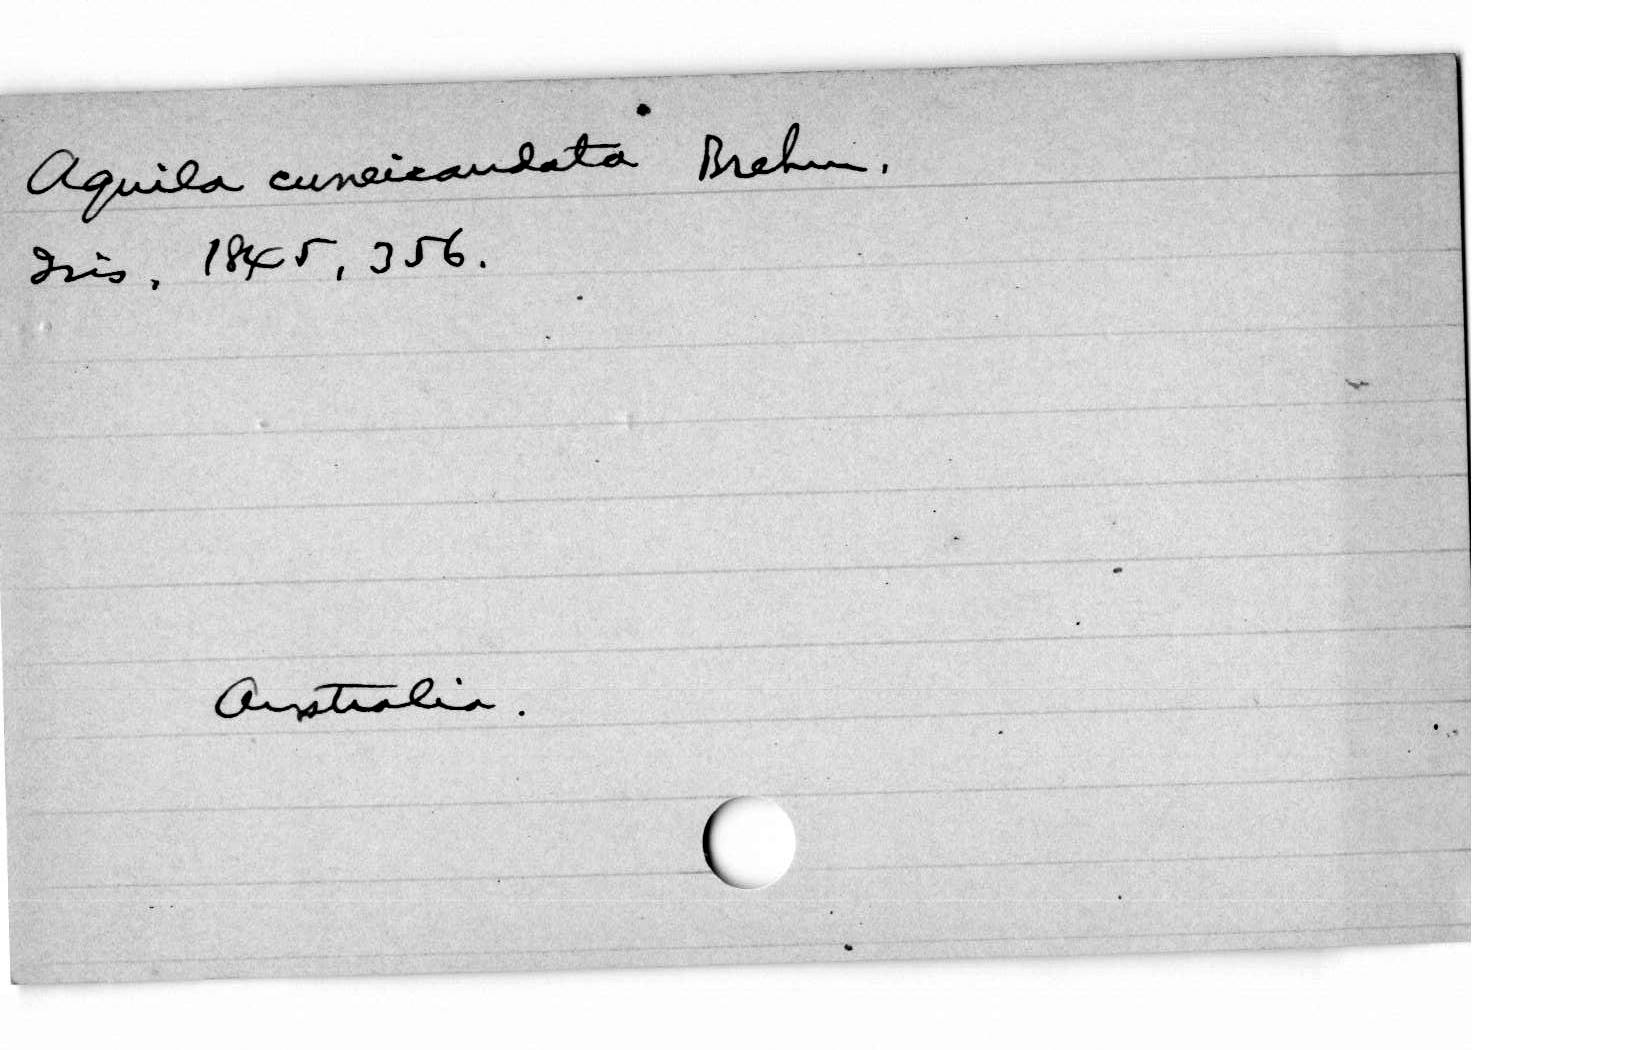 Aquila cuneicaudata Brehm.
Isis, 1845, 356.
Australia.